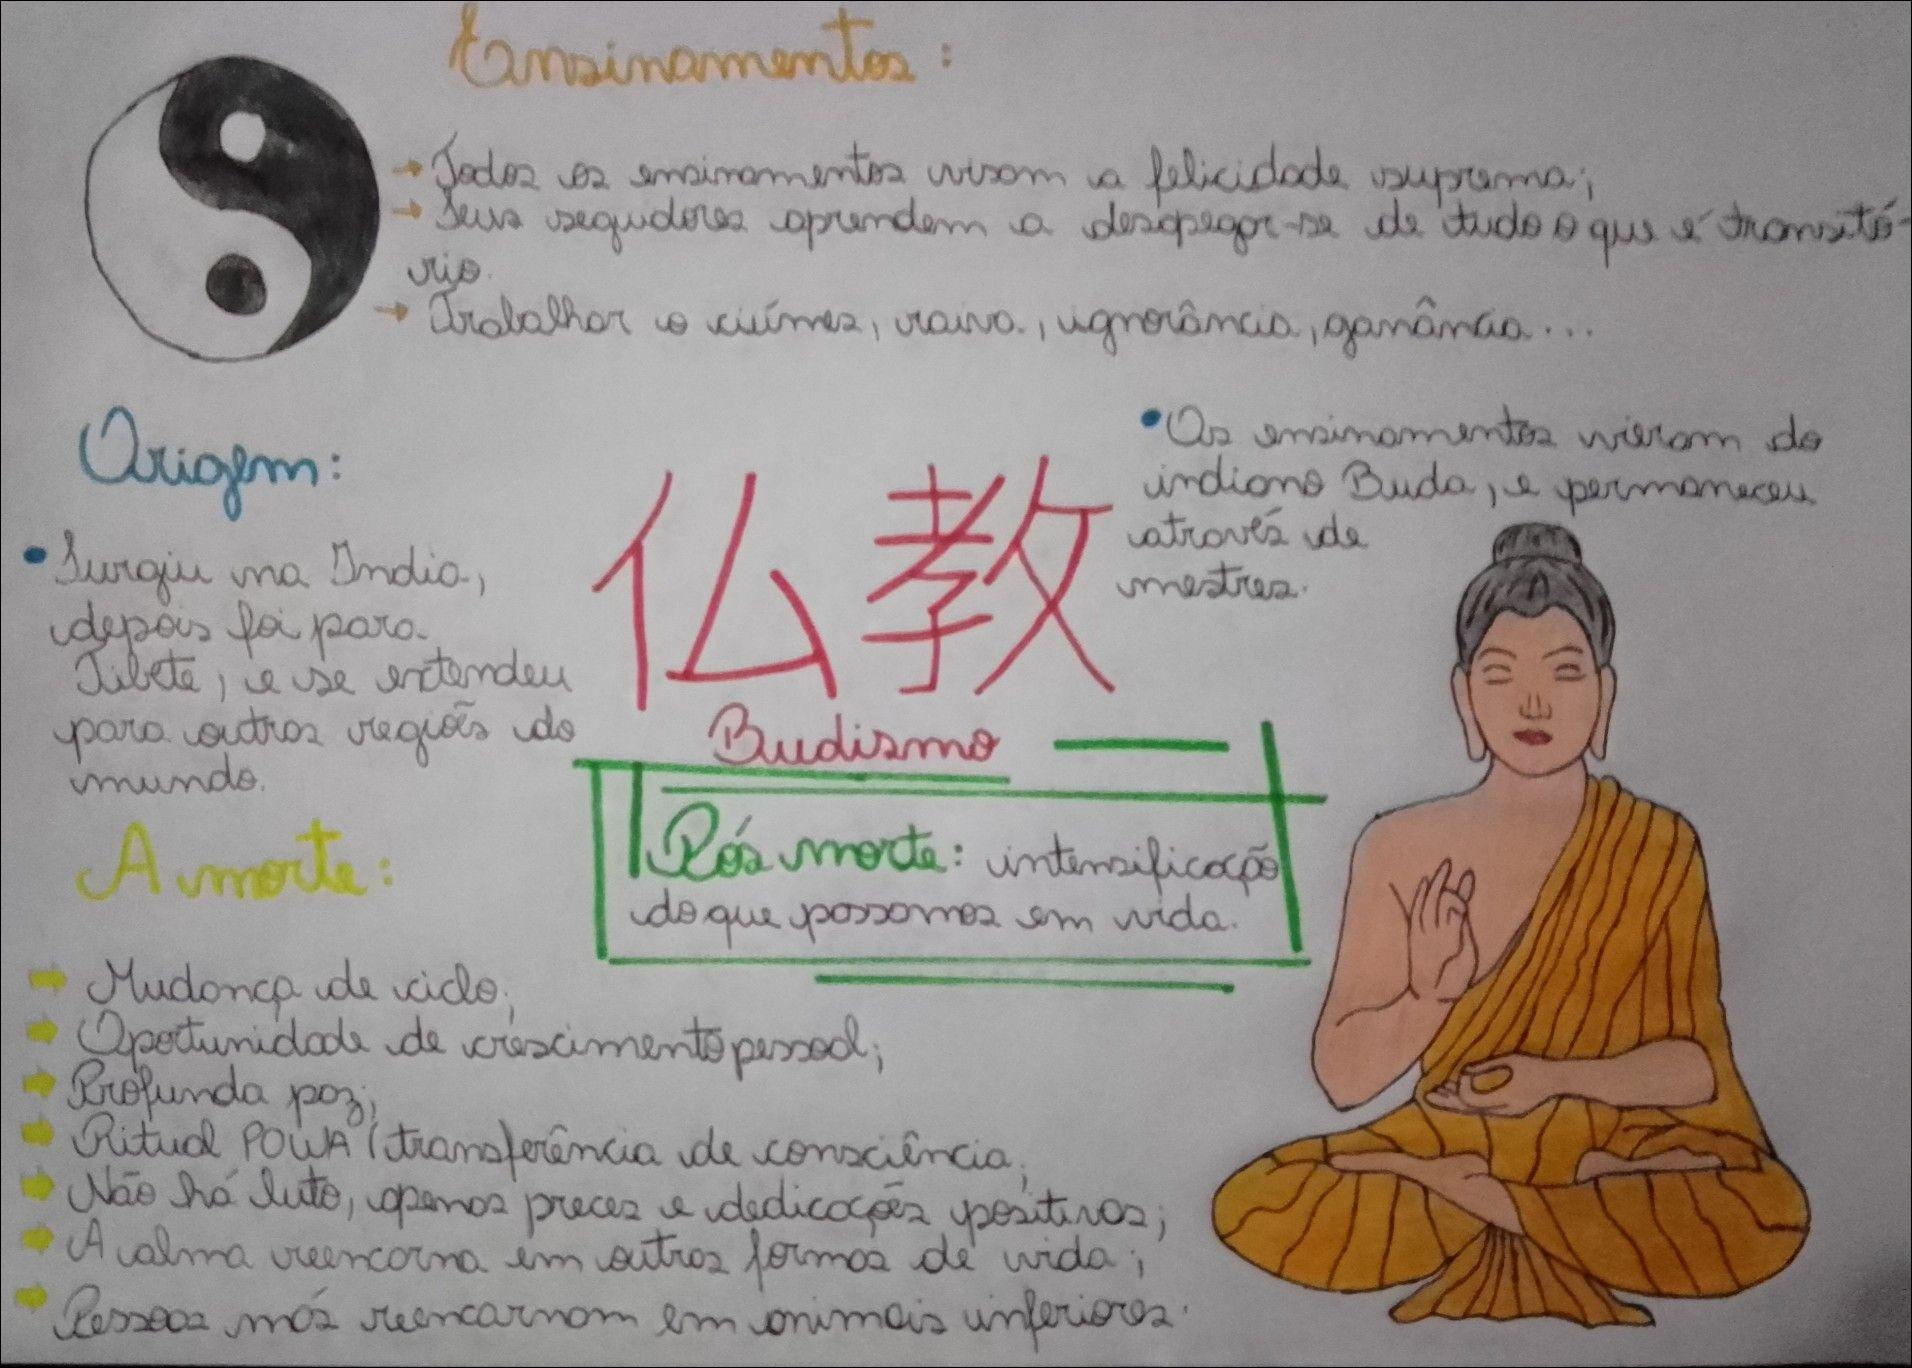 Ensinamentos:
→ Todos os ensinamentos visam a felicidade suprema;
→ Seus seguidores aprendem a desapegar-se de tudo o que é transitó-
rio.
→ Trabalhar o ciúmes, raiva, ignorância, ganância...
Origem:
• Surgiu na India,
depois foi para
Tibete, e se extendeu
para outras regiões do
mundo.
仏教
Budismo
• Os ensinamentos vieram do
indiano Buda, e permaneceu
através de
mestres.
Pós morte: intensificação
do que passamos em vida.
A morte:
Mudança de ciclo;
Oportunidade de crescimento pessoal;
Profunda paz;
Ritual POWA (transferência de consciência;
Não há luto, apenas preces e dedicações positivas;
A alma reencarna em outras formas de vida;
Pessoas más reencarnam em animais inferiores.